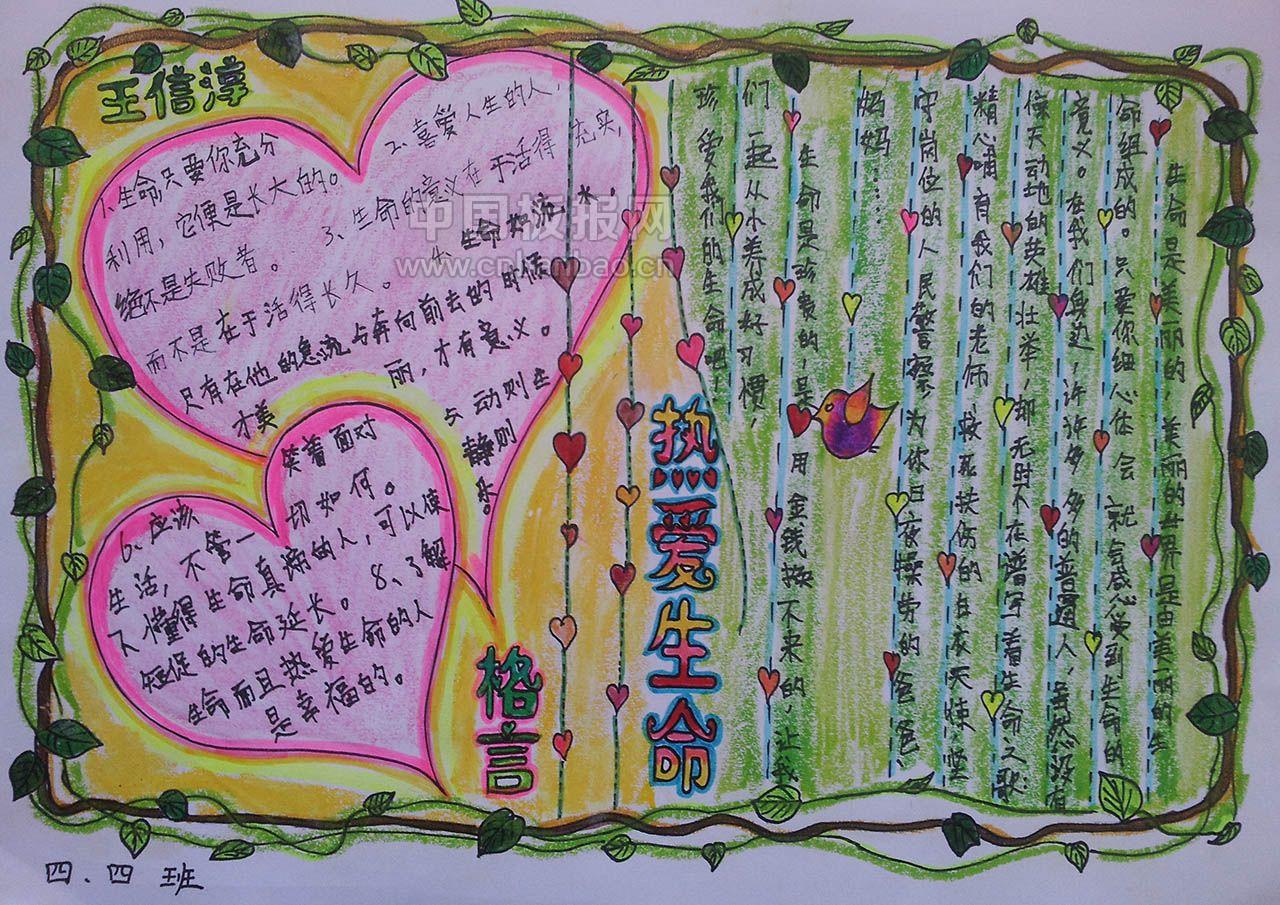 王信淳
1、生命只要你充分
利用，它便是长大的。
2、喜爱人生的人，
绝不是失败者。
3、生命的意义在于活得充实，
而不是在于活得长久。
4、生命如流水，
只有在他的急流与奔向前去的时候
才美丽，才有意义。
5 动则生
静则乐。
6、应该
笑着面对
生活，不管一切如何。
7、懂得生命真谛的人，可以使
短促的生命延长。8、了解
生命而且热爱生命的人
是幸福的。
格言
热爱生命
生命是美丽的，美丽的世界是由美丽的生
命组成的。只要你细心体会 就会感受到生命的
意义。在我们身边，许许多多的普通人，虽然没有
惊天动地的英雄壮举，那无时不在谱写着生命之歌：
精心哺育我们的老师，救死扶伤的白衣天使 坚
守岗位的人民警察，为你日夜操劳的爸爸、
妈妈……
生命是珍贵的，是用金钱换不来的，让我
们一起从小养成好习惯，
珍爱我们的生命吧！
四、四 班
中国板报网
www.cnbanbao.cn